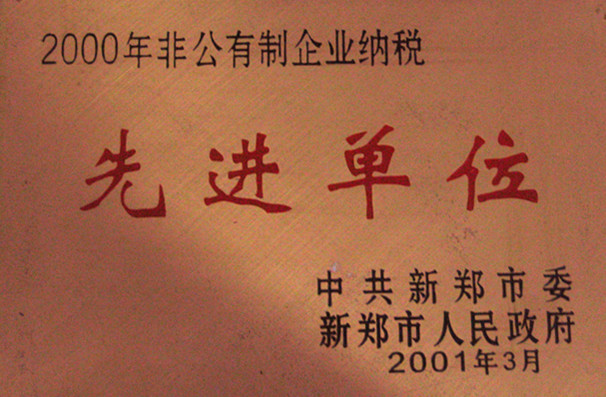 2000年非公有制企业纳税
先进单位
中共新郑市委
新郑市人民政府
2001年3月